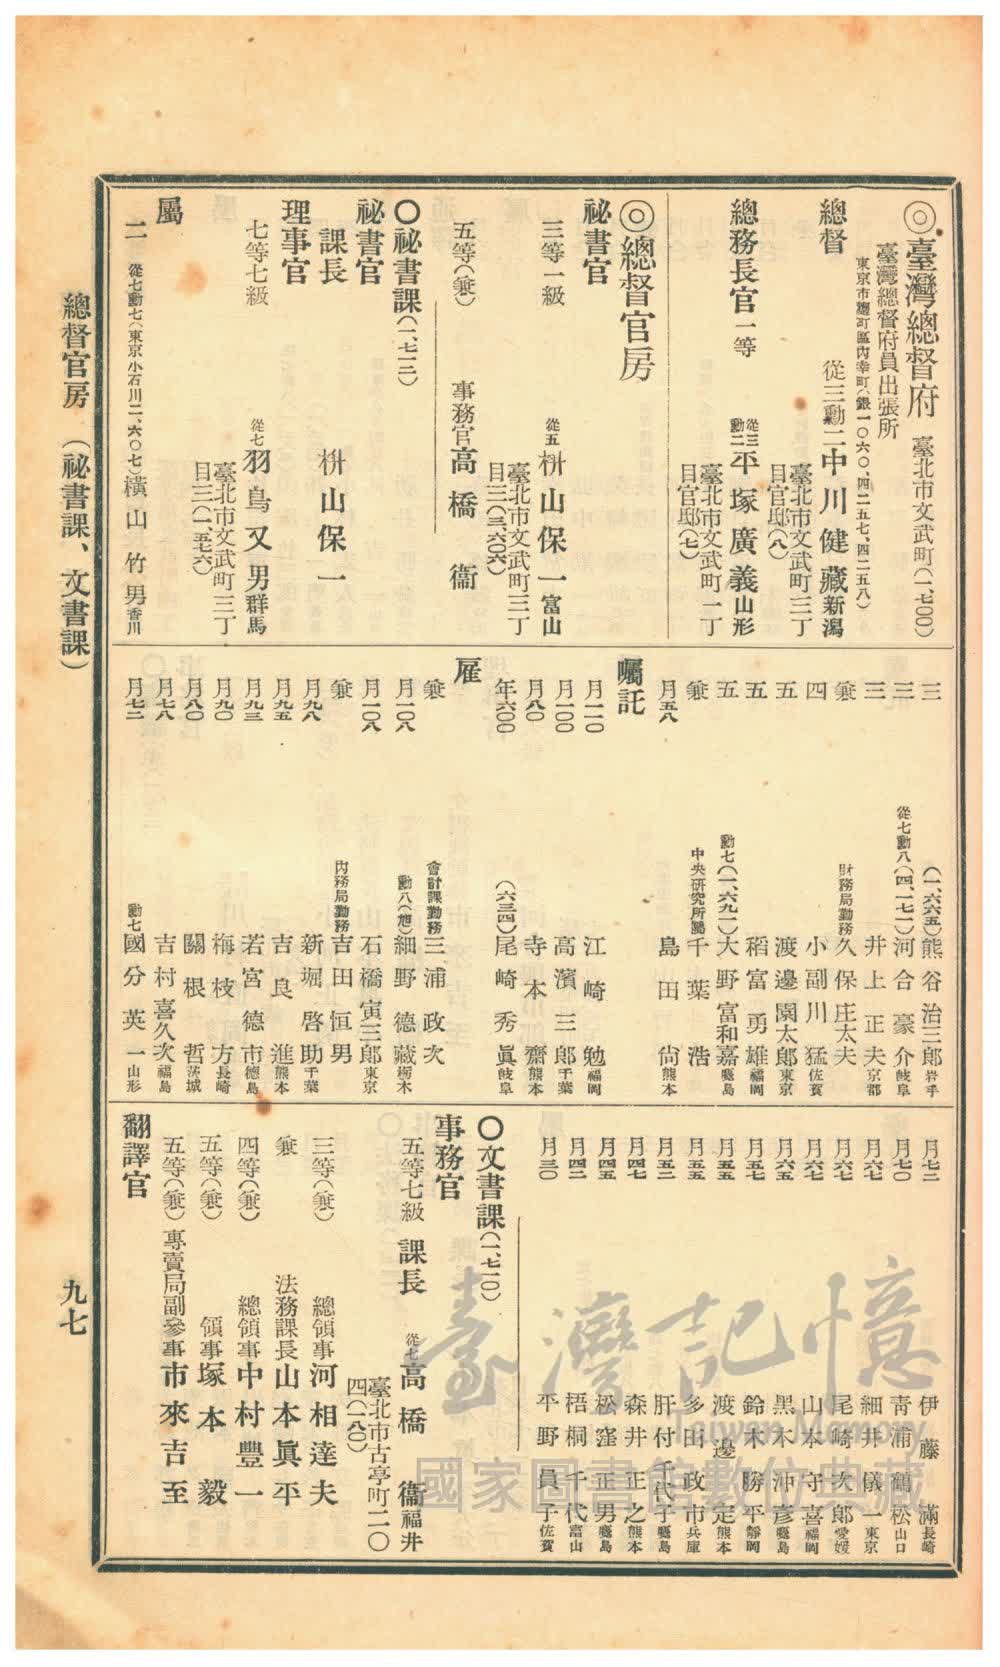 ◎臺灣總督府 臺北市文武町(一、七〇〇)
臺灣總督府員出張所
東京市麴町區內幸町(銀一〇六〇、四二五七、四二五八)
總督 從三勳二 中川健藏 新潟
臺北市文武町三丁
目官邸(八)
總務長官 一等 從三勳二 平塚廣義 山形
臺北市文武町一丁
目官邸(七)
◎總督官房
祕書官
三等一級 從五 枡山保一 富山
臺北市文武町三丁
目三(三、六〇六)
五等(兼) 事務官 高橋衞
〇祕書課(一、七一二)
祕書官
課長 枡山保一
理事官
七等七級 從七 羽鳥又男 群馬
臺北市文武町三丁
目三(一、五七六)
屬
二 從七勳七(東京小石川二、六〇七) 橫山竹男 香川
三 (一、六六五) 熊谷治三郎 岩手
三 從七勳八(四、一七一) 河合豪介 岐阜
三 井上正夫 京都
兼 財務局勤務 久保庄太夫
四 小副川猛 佐賀
五 渡邊園太郎 東京
五 稻富勇雄 福岡
五 勳七(一、六九一) 大野富和嘉 鹿島
兼 中央硏究所屬 千葉浩
月五八 島田尙 熊本
囑託
月一二〇 江崎勉 福岡
月一〇〇 高濱三郎 千葉
月八〇 寺本齋 熊本
年六〇〇 (六三四) 尾崎秀眞 岐阜
雇
兼 會計課勤務 三浦政次
月一〇八 勳八(旭) 細野德藏 栃木
月一〇八 石橋寅三郎 東京
兼 內務局勤務 吉田恒男
月九八 新堀啓助 千葉
月九五 吉良進 熊本
月九三 若宮德市 德島
月九〇 梅枝方 長崎
月八〇 關根哲 茨城
月七八 吉村喜久次 福島
月七二 勳七 國分英一 山形
月七二 伊藤滿 長崎
月七〇 靑浦鶴松 山口
月六七 細井儀一 東京
月六七 尾崎次郎 愛媛
月六七 山本守喜 福岡
月六五 黑木沖彥 鹿島
月五七 鈴木勝平 靜岡
月五五 渡邊定 熊本
月五五 多田政市 兵庫
月五二 肝付千代子 鹿島
月四七 森井正之 熊本
月四五 松窪正男 鹿島
月四二 梧桐千代 富山
月三〇 平野員子 佐賀
〇文書課(一、七一〇)
事務官
五等七級 課長 從七 高橋衞 福井
臺北市古亭町二〇
四(一八〇)
三等(兼) 總領事 河相達夫
兼 法務課長 山本眞平
四等(兼) 總領事 中村豐一
五等(兼) 領事 塚本毅
五等(兼) 專賣局副參事 市來吉至
翻譯官
總督官房 (祕書課、文書課)
九七
臺灣記憶
Taiwan Memory
國家圖書館數位典藏